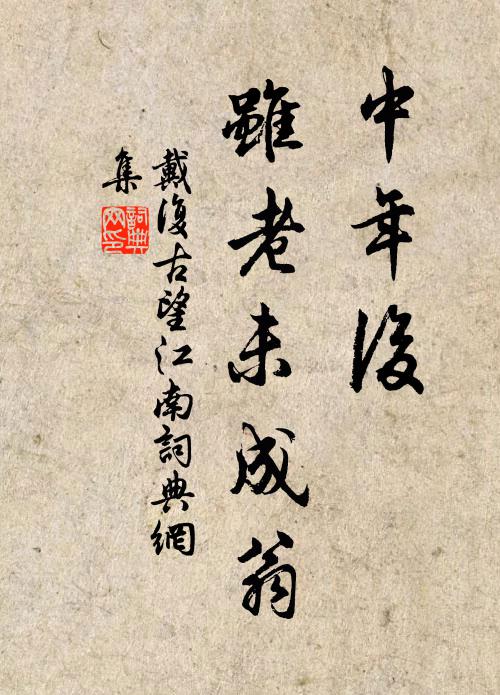 中年後
雖老未成翁
戴復古望江南詞典網
集
詞典網印